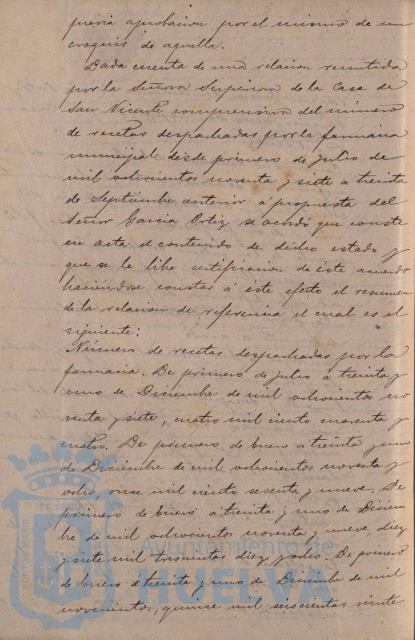 prévia aprobacion por el mismo de un
croquis de aquella.
Dada cuenta de una relacion remitida
por la Señora Superiora de la Casa de
San Vicente comprensiva del número
de recetas despachadas por la farmacia
municipal desde primero de julio de
mil ochocientos noventa y siete a treinta
de Septiembre anterior a propuesta del
Señor Garcia Ortiz se acordó que conste
en acta el contenido de dicho estado y
que se le libre certificacion de éste acuerdo
haciendose constar á éste efecto el resumen
de la relacion de referencia el cual es el
siguiente:
Número de recetas despachadas por la
farmacia. De primero de julio a treinta y
uno de Diciembre de mil ochocientos no
venta y siete, cuatro mil ciento cuarenta y
cuatro. De primero de Enero a treinta y uno
de Diciembre de mil ochocientos noventa y
ocho, once mil ciento sesenta y nueve. De
primero de Enero a treinta y uno de Diciem
bre de mil ochocientos noventa y nueve, diez
y siete mil trescientos diez y ocho. De primero
de Enero a treinta y uno de Diciembre de mil
novecientos, quince mil seiscientas veinte
Ayuntamiento de
HUELVA